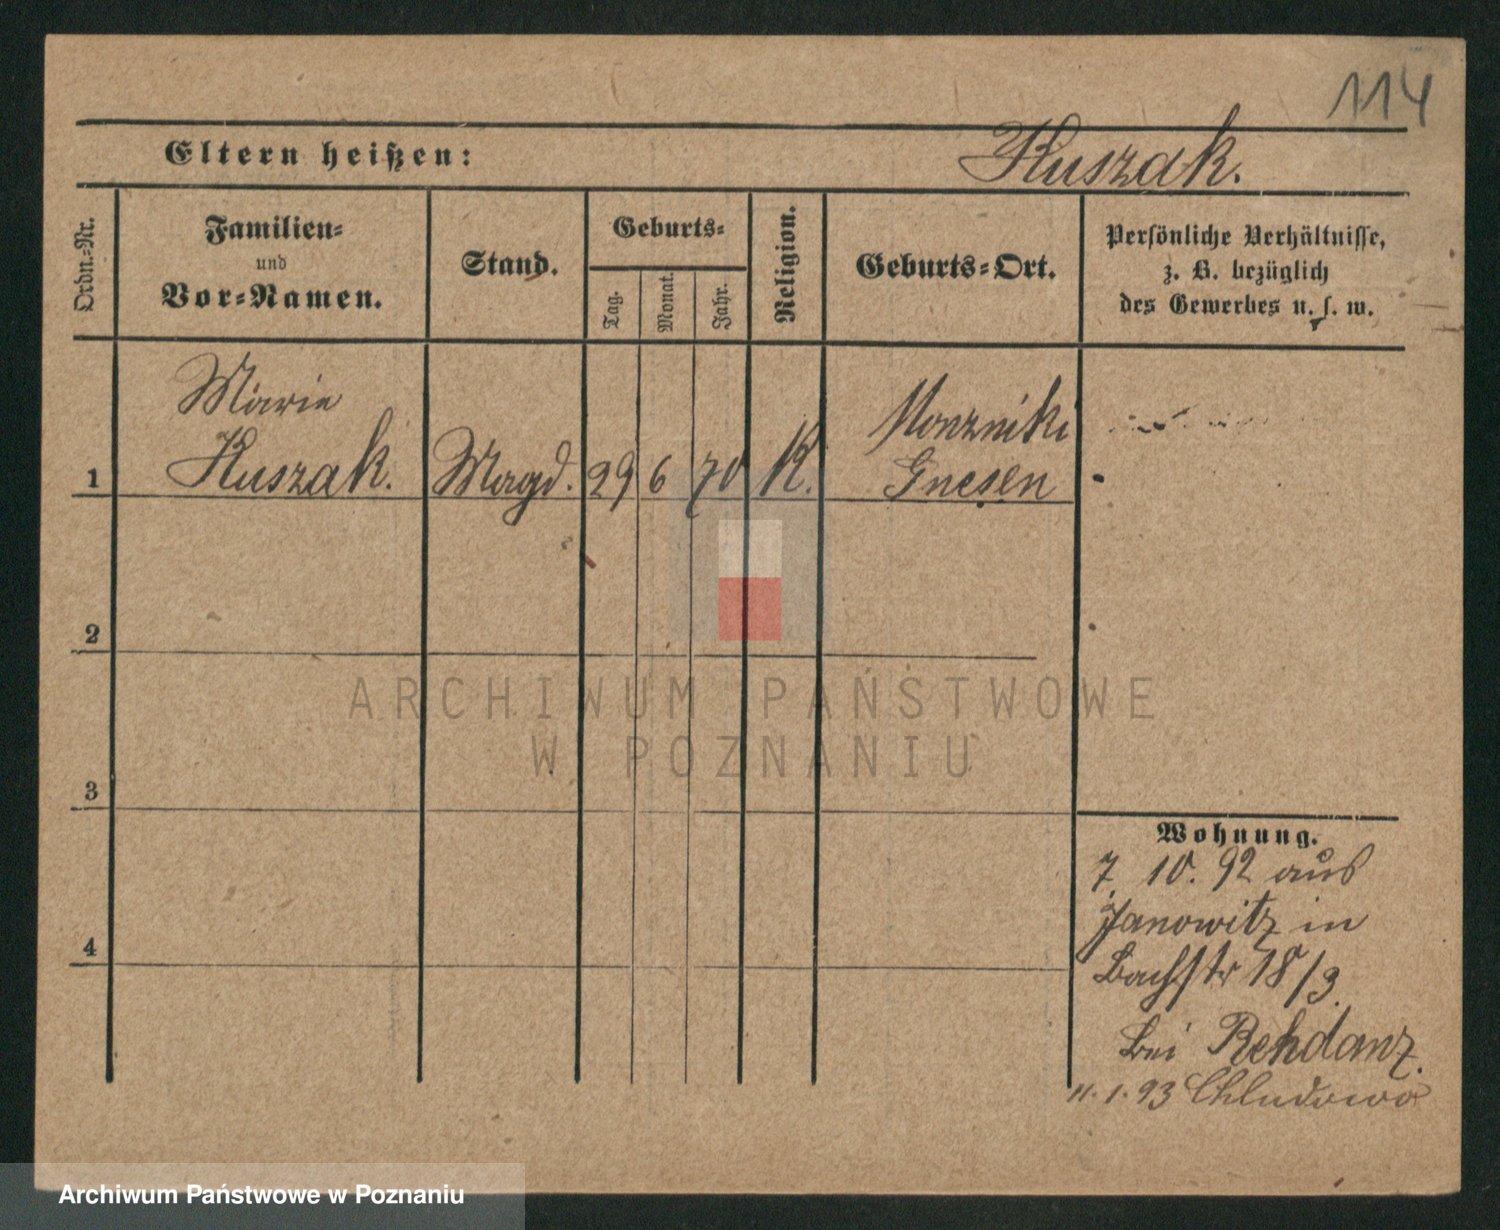 114
Eltern heißen:
Kuszak.
Ordn.-Nr.
Familien-
und
Vor-Namen.
Stand.
Geburts-
Tag.
Monat.
Jahr.
Religion.
Geburts-Ort.
Persönliche Verhältnisse,
z. B. bezüglich
des Gewerbes u. s. w.
1
Marie
Kuszak.
Magd.
29
6
70
K.
Gnesen
2
3
4
ARCHIWUM PAŃSTWOWE
W POZNANIU
Wohnung.
7. 10. 92 aus
Janowitz in
Bachstr 18/3.
bei Rehdanz.
11. 1. 93 Chludowo
Archiwum Państwowe w Poznaniu